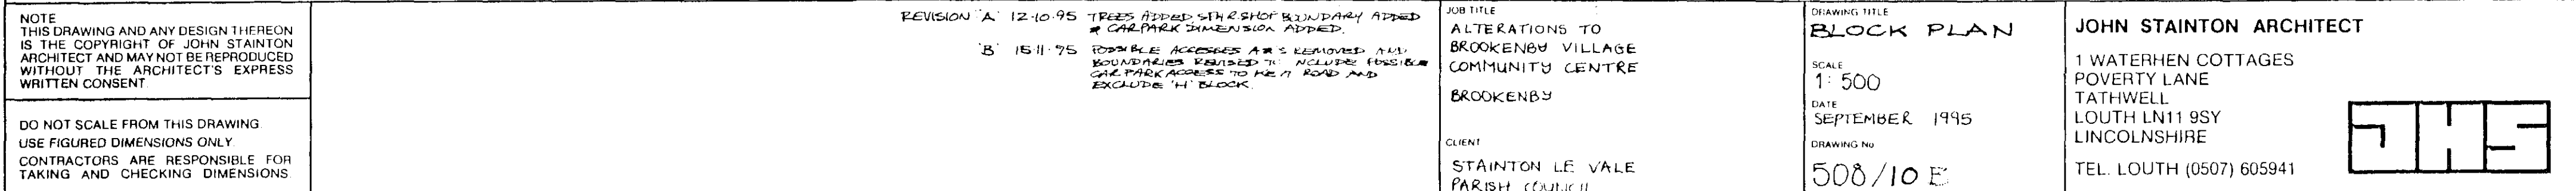 NOTE
THIS DRAWING AND ANY DESIGN THEREON
IS THE COPYRIGHT OF JOHN STAINTON
ARCHITECT AND MAY NOT BE REPRODUCED
WITHOUT THE ARCHITECT'S EXPRESS
WRITTEN CONSENT.
DO NOT SCALE FROM THIS DRAWING.
USE FIGURED DIMENSIONS ONLY.
CONTRACTORS ARE RESPONSIBLE FOR
TAKING AND CHECKING DIMENSIONS.
REVISION 'A' 12·10·95 TREES ADDED BOUNDARY ADDED
CARPARK DIMENSION ADDED.
'B' 15·11·95 POSSIBLE ACCESSES REMOVED AND
BOUNDARIES REVISED TO INCLUDE POSSIBLE
CAR PARK ACCESS TO ROAD AND
EXCLUDE 'H' BLOCK.
JOB TITLE
ALTERATIONS TO
BROOKENBY VILLAGE
COMMUNITY CENTRE
BROOKENBY
CLIENT
STAINTON LE VALE
PARISH COUNCIL
DRAWING TITLE
BLOCK PLAN
SCALE
1:500
DATE
SEPTEMBER 1995
DRAWING No
508/10 E
JOHN STAINTON ARCHITECT
1 WATERHEN COTTAGES
POVERTY LANE
TATHWELL
LOUTH LN11 9SY
LINCOLNSHIRE
TEL. LOUTH (0507) 605941
JHS